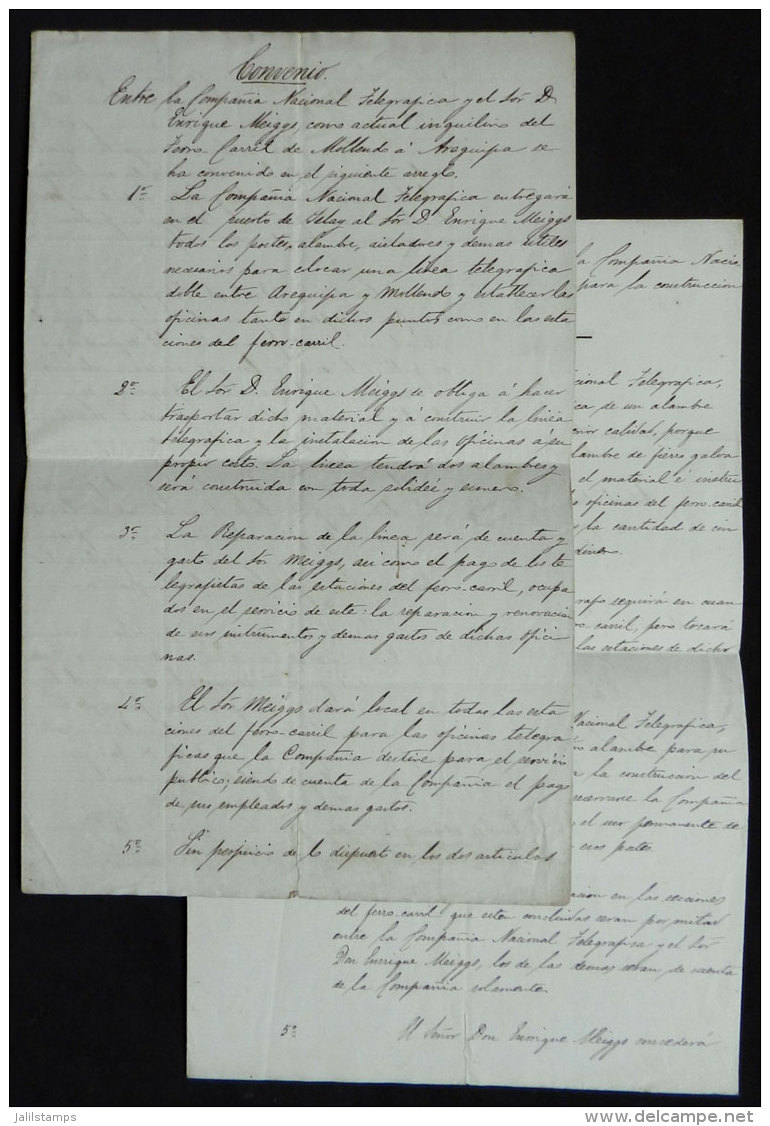 Convenio.
Entre la Compañia Nacional Telegrafica y el Sor D.
Enrique Meiggs, como actual inquilino del
Ferro-Carril de Mollendo á Arequipa se
ha convenido en el siguiente arreglo.
1º La Compañia Nacional Telegrafica entregará
en el puerto de Islay al Sor D. Enrique Meiggs
todos los postes, alambre, aisladores y demas utiles
necesarios para colocar una linea telegrafica
doble entre Arequipa y Mollendo y establecer las
oficinas tanto en dichos puntos como en las esta
ciones del ferro-carril.
2º El Sor D. Enrique Meiggs se obliga á hacer
trasportar dicho material y á construir la linea
telegrafica y la instalacion de las oficinas á su
propio costo. La linea tendrá dos alambres y
será construida con toda solidez y esmero.
3º La Reparacion de la linea será de cuenta y
gasto del Sor Meiggs, asi como el pago de los te
legrafistas de las estaciones del ferro-carril, ocupa
dos en el servicio de este: la reparacion y renovacion
de sus instrumentos y demas gastos de dichas ofici
nas.
4º El Sor Meiggs dará local en todas las esta
ciones del ferro-carril para las oficinas telegra
ficas que la Compañia destine para el servicio
publico; siendo de cuenta de la Compañia el pago
de sus empleados y demas gastos.
5º Sin perjuicio de lo dispuesto en los dos articulos
la Compañia Nacio
para la construccion
cional Telegrafica,
ca de un alambre
calidad, porque
alambre de fierro galva
el material é instru
oficinas del ferro-carril
la cantidad de cin
dinero.
rafo seguirá en cuan
carril, pero tocará
las estaciones de dicho
Nacional Telegrafica,
alambre para su
la construccion del
reservarse la Compañia
el uso permanente de
esos postes.
racion en las secciones
del ferro-carril que esten concluidas seran por mitad
entre la Compañia Nacional Telegrafica y el Sor
Don Enrrique Meiggs, los de las demas seran de cuenta
de la Compañia solamente.
5º El Señor Don Enrrique Meiggs concederá
jalilstamps
delcampe.net